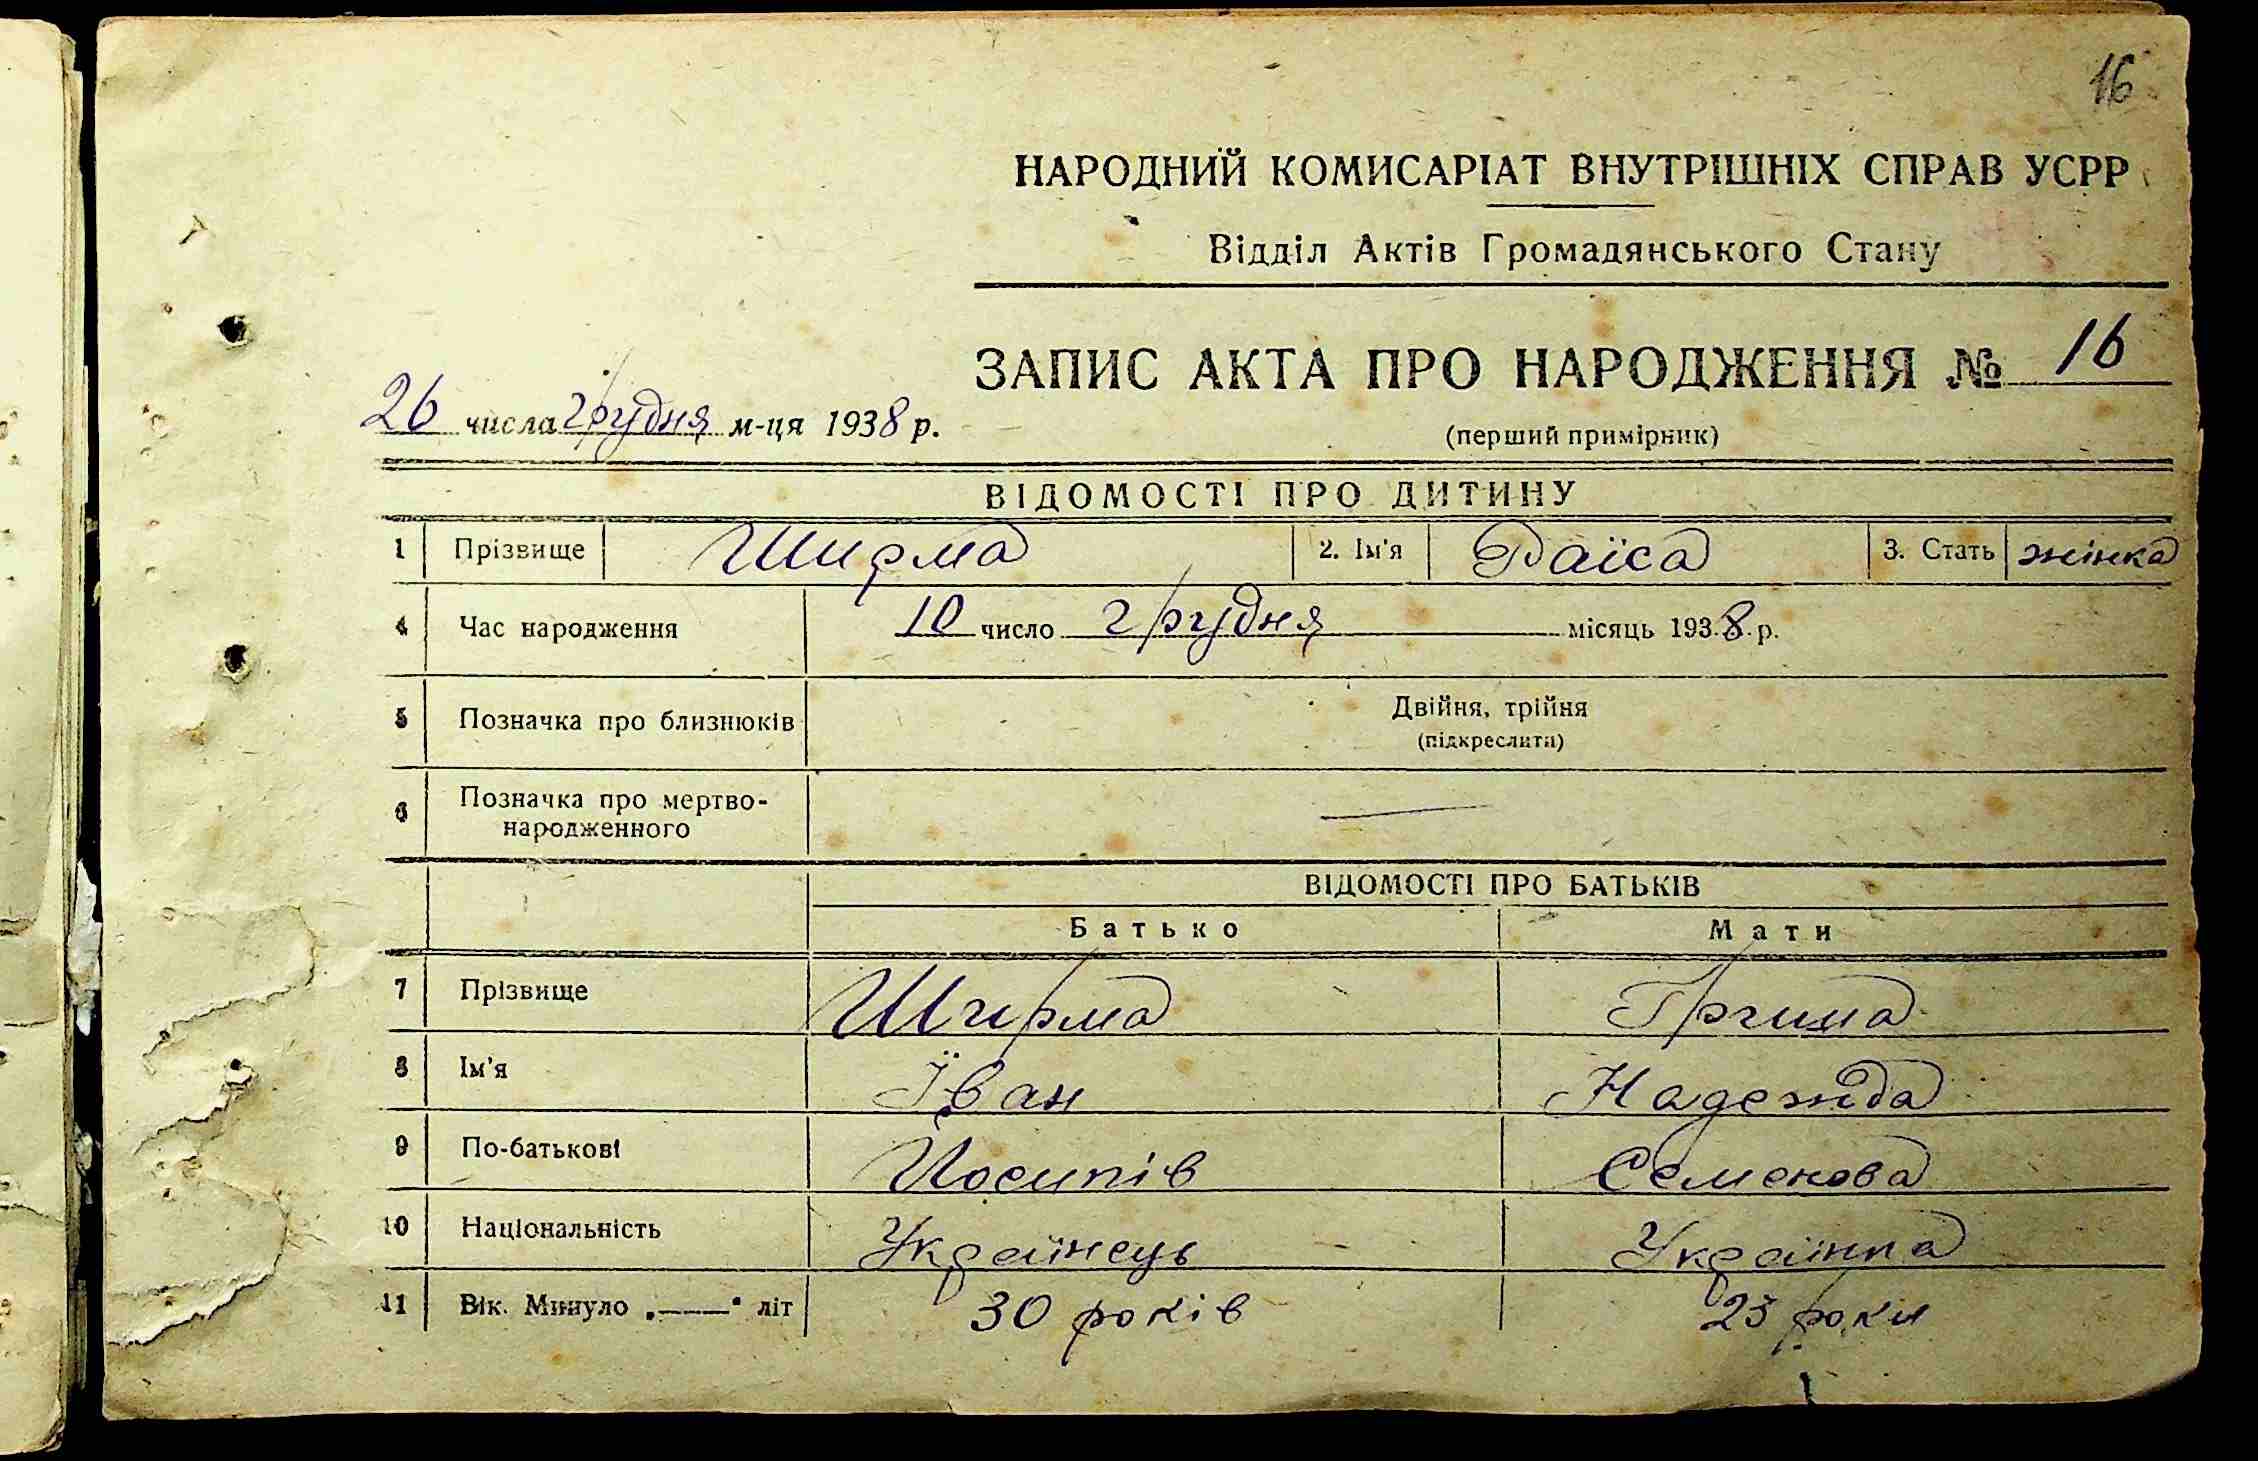 16
НАРОДНИЙ КОМИСАРІАТ ВНУТРІШНІХ СПРАВ УСРР
Відділ Актів Громадянського Стану
ЗАПИС АКТА ПРО НАРОДЖЕННЯ № 16
26 числа грудня м-ця 1938 р.
(перший примірник)
ВІДОМОСТІ ПРО ДИТИНУ
1 Прізвище Ширма 2. Ім'я Раїса 3. Стать жінка
4 Час народження 10 число грудня місяць 1938 р.
5 Позначка про близнюків Двійня, трійня
(підкреслити)
6 Позначка про мертво-
народженного —
ВІДОМОСТІ ПРО БАТЬКІВ
Батько Мати
7 Прізвище Ширма
8 Ім'я Їван Надежда
9 По-батькові Йосипів Семенова
10 Національність Українець Українка
11 Вік. Минуло „——“ літ 30 років 23 роки